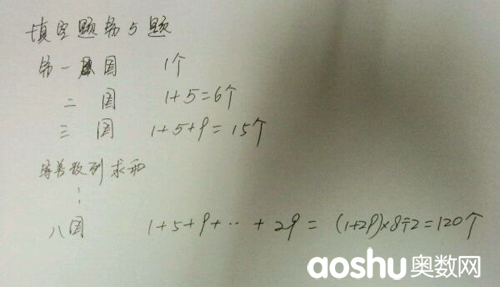 填空题第5题
第一图 1个
二图 1+5=6个
三图 1+5+9=15个
等差数列求和
⋮
八图 1+5+9+…+29=(1+29)×8÷2=120个
aoshu奥数网